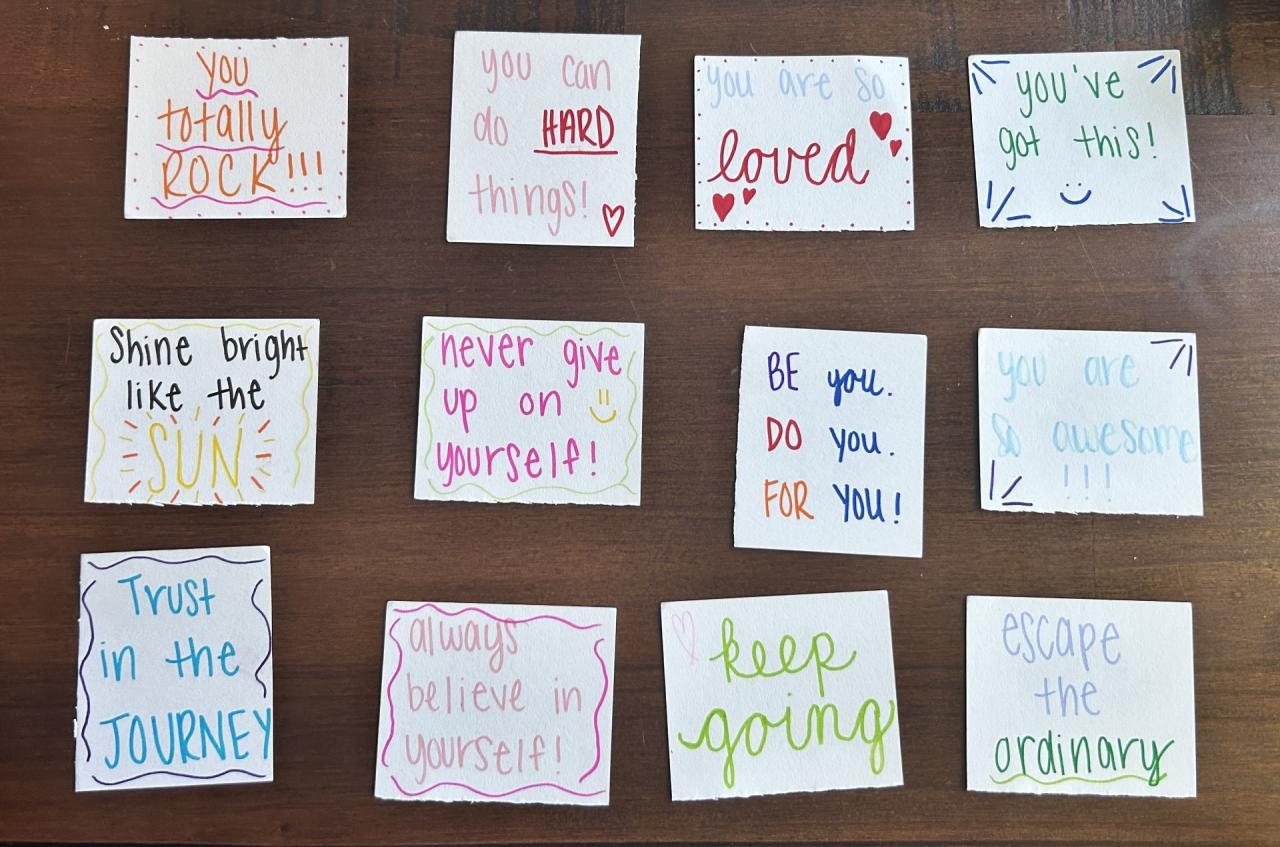 you
totally
ROCK!!!
you can
do HARD
things!
you are so
loved
you've
got this!
Shine bright
like the
SUN
never give
up on
yourself!
BE you.
DO you.
FOR YOU!
you are
so awesome
!!!
Trust
in the
JOURNEY
always
believe in
yourself!
keep
going
escape
the
ordinary